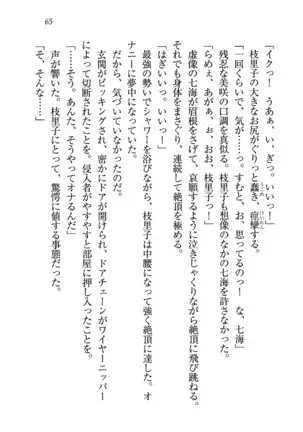 65
「イクっ！　うあぁ、い、ぎっ。いいっ！」
枝里子の大きなお尻がぐりっと蠢き、痙攣する。
「一回くらいで、気が……っ。すむと、お、思ってるのっ！　な、七海」
残忍な美咲の口調を真似る。枝里子も想像のなかの七海を許さなかった。
「らめぇ。あがぁっ、ぉ、おお、枝里子っ！」
虚像の七海が眉根をさげて、哀願するように泣きじゃくりながら絶頂に飛び跳ねる。
それでも身体をまさぐり、連続して絶頂を極める。
「はぎいいっ。いいっ！」
最強の勢いでシャワーを浴びながら、枝里子は中腰になって強く絶頂に達した。オ
ナニーに夢中になっていた。
だから、気づいていなかったのだ。
玄関がピッキングされ、密かにドアが開けられ、ドアチェーンがワイヤーニッパー
によって切断されたことを。侵入者がやすやすと部屋に押し入ったことを。
「……そう。あんた、そうやってオナるんだ」
声が響いた。枝里子にとって、驚愕に値する事態だった。
「そ、そんな……っ」